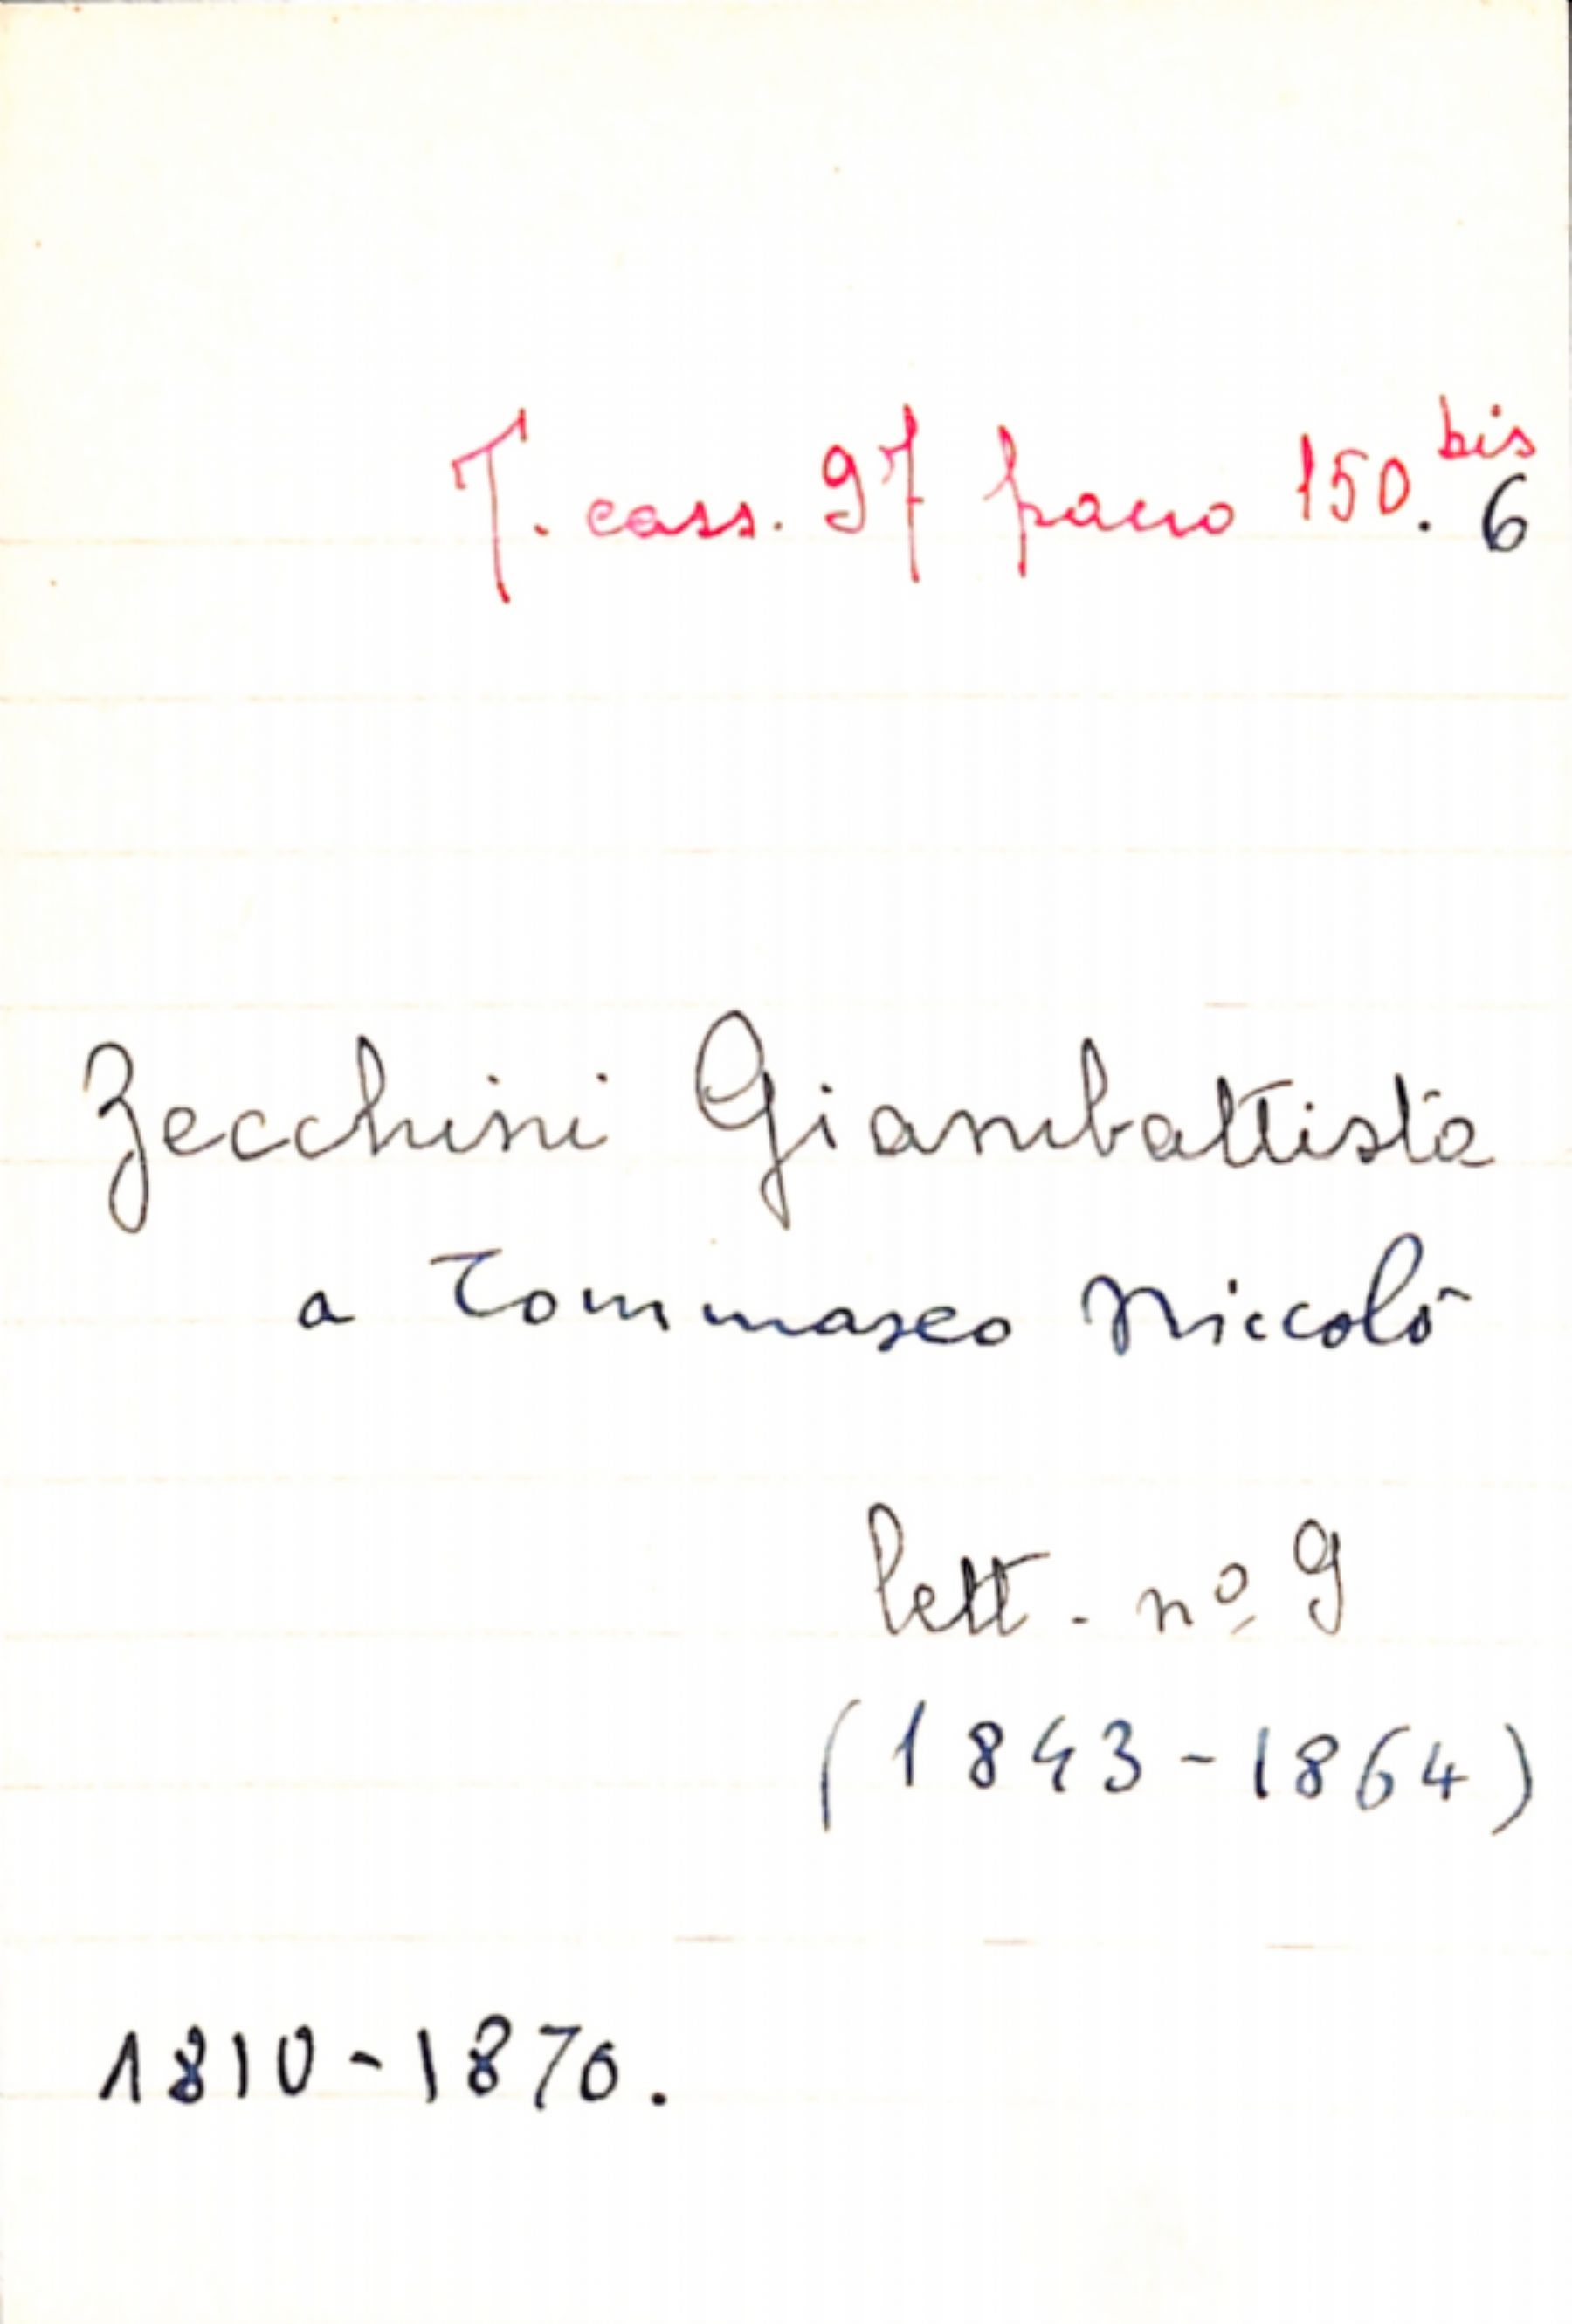 T. cass. 97 pacco 150. bis 6
Zecchini Giambattista
a Tommaseo Niccolò
lett. nº 9
(1843-1864)
1810-1870.